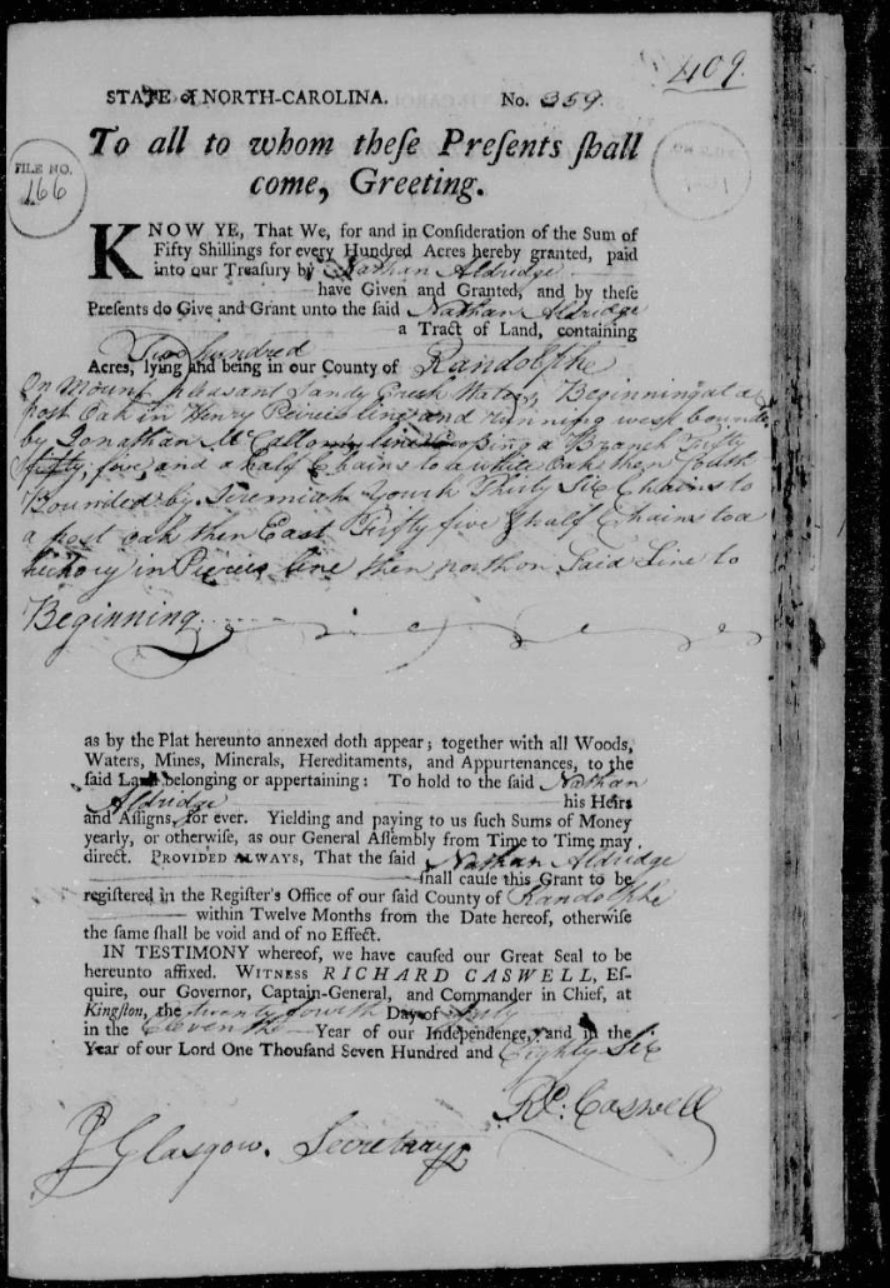 409.
STATE of NORTH-CAROLINA. No. 359.
To all to whom theſe Preſents ſhall
come, Greeting.
FILE NO.
166
KNOW YE, That We, for and in Conſideration of the Sum of
Fifty Shillings for every Hundred Acres hereby granted, paid
into our Treaſury by Nathan Aldridge
have Given and Granted, and by theſe
Preſents do Give and Grant unto the ſaid Nathan Aldridge
a Tract of Land, containing
Two hundred
Acres, lying and being in our County of Randolphe
On Mount pleasant Sandy Creek Waters, Beginning at a
post Oak in Henry Pierces line and running west bounded
by Jonathan McCalloms line Crossing a Branch Fifty
fifty, five, and a half Chains to a white Oak then South
Bounded by Jeremiah York Thirty Six Chains to
a post oak then East Fifty five & half Chains to a
hickory in Pierces line then north on Said Line to
Beginning
as by the Plat hereunto annexed doth appear; together with all Woods,
Waters, Mines, Minerals, Hereditaments, and Appurtenances, to the
ſaid Land belonging or appertaining: To hold to the ſaid Nathan
Aldridge his Heirs
and Aſſigns, for ever. Yielding and paying to us ſuch Sums of Money
yearly, or otherwiſe, as our General Aſſembly from Time to Time may
direct. PROVIDED ALWAYS, That the ſaid Nathan Aldridge
ſhall cauſe this Grant to be
regiſtered in the Regiſter's Office of our ſaid County of Randolphe
within Twelve Months from the Date hereof, otherwiſe
the ſame ſhall be void and of no Effect.
IN TESTIMONY whereof, we have cauſed our Great Seal to be
hereunto affixed. WITNESS RICHARD CASWELL, Eſ-
quire, our Governor, Captain-General, and Commander in Chief, at
Kingſton, the twenty fourth Day of July
in the Eleventh Year of our Independence, and in the
Year of our Lord One Thouſand Seven Hundred and Eighty Six
Rd: Caswell
J Glasgow. Secretary